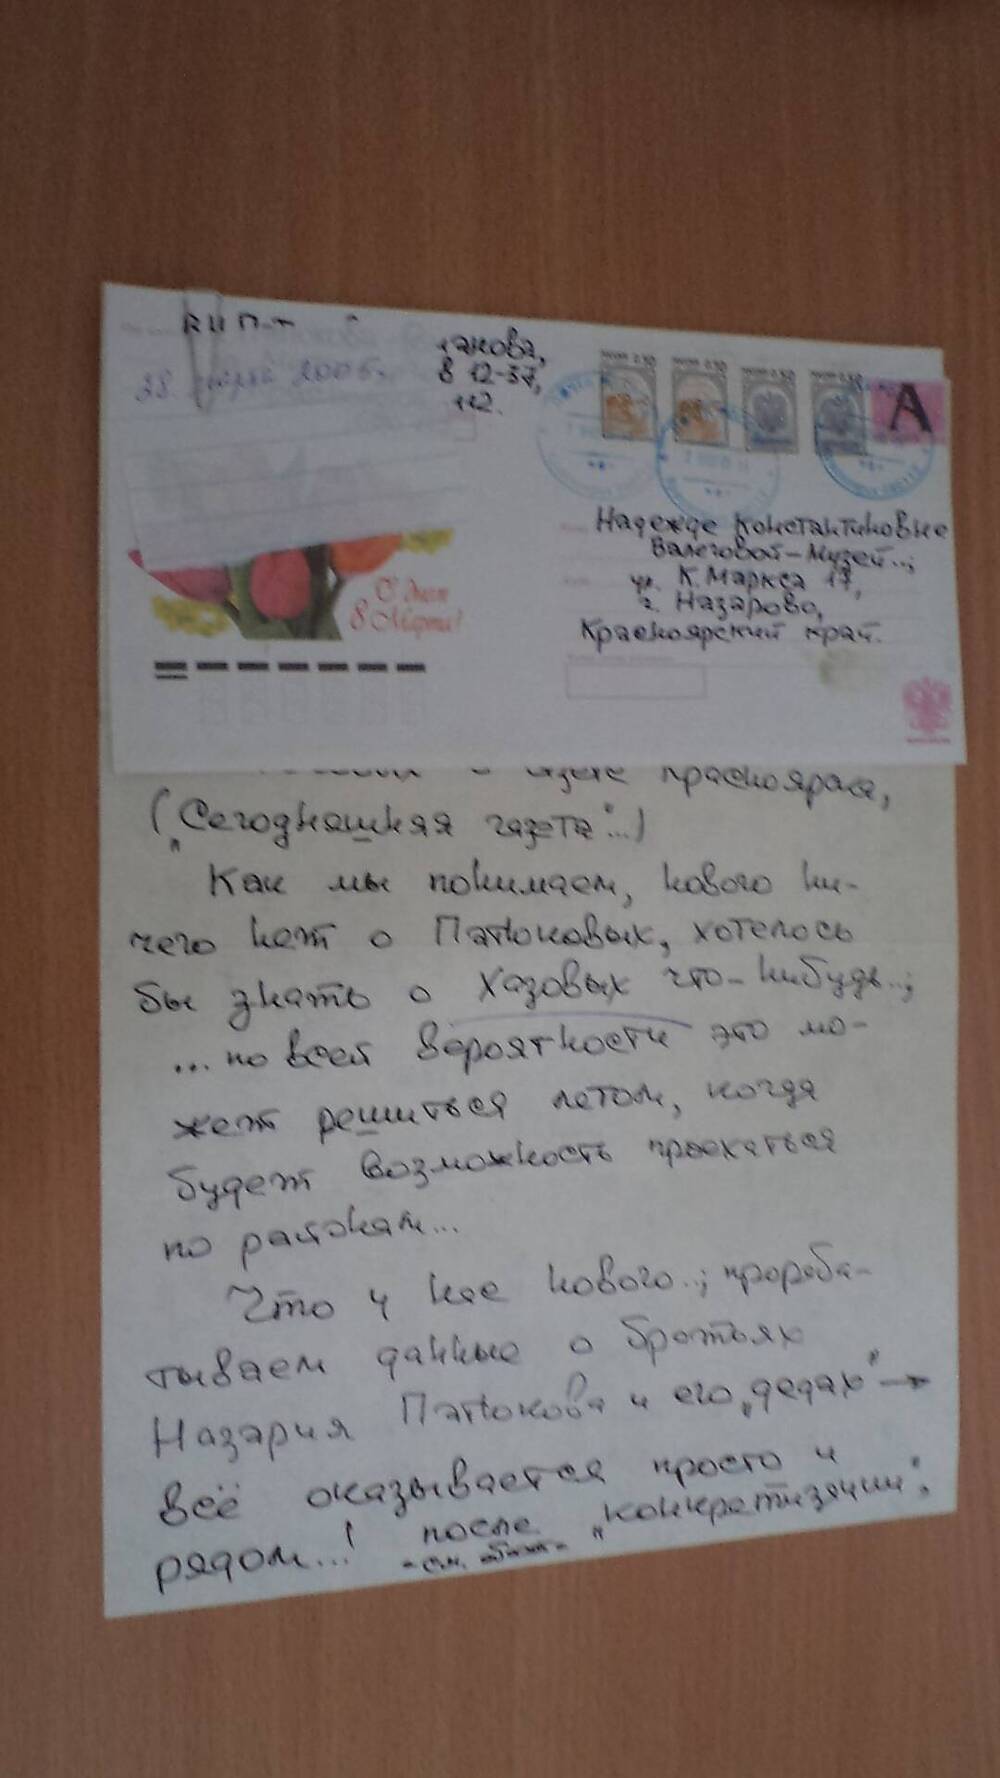 КИ П-т
28. марта 2006г.
акова,
8 12-37,
112.
А
Надежде Константиновне
Валеговой-Музей..;
ул. К. Маркса 17,
г. Назарово,
Красноярский край.
С днем
8 Марта!
газете Красноярска,
(„Сегодняшняя газета"...)
Как мы понимаем, нового ни-
чего нет о Патюковых, хотелось
бы знать о Хазовых что-нибудь..;
... по всей вероятности это мо-
жет решиться летом, когда
будет возможность проехаться
по районам...
Что у нас нового..; прораба-
тываем данные о братьях
Назария Патюкова и его „дедах" →
всё оказывается просто и
рядом...! после „конкретизации";